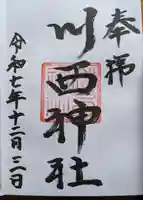 奉拝
川西神社
令和七年十二月三一日